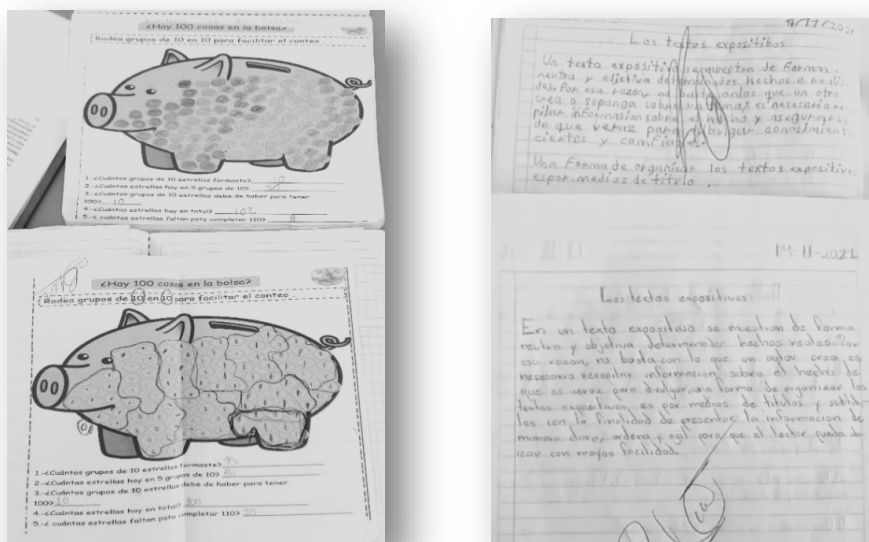 ¿Hay 100 cosas en la bolsa?
Rodea grupos de 10 en 10 para facilitar el conteo
1.-¿Cuántos grupos de 10 estrellas formaste? 10
2.-¿Cuántas estrellas hay en 5 grupos de 10? 50
3.-¿Cuántos grupos de 10 estrellas debe de haber para tener
100? 10
4.-¿Cuántas estrellas hay en total? 102
5.-¿ cuántas estrellas faltan para completar 110? 8
¿Hay 100 cosas en la bolsa?
Rodea grupos de 10 en 10 para facilitar el conteo
1.-¿Cuántos grupos de 10 estrellas formaste?
2.-¿Cuántas estrellas hay en 5 grupos de 10?
3.-¿Cuántos grupos de 10 estrellas debe de haber para tener
100? 10
4.-¿Cuántas estrellas hay en total? 100
5.-¿ cuántas estrellas faltan para completar 110? 10
Los textos expositibos
Un texto expositivo se muestra de Forma
neutra y objetiva determinados hechos o reali
des. Por esa razon no basta con los que un otro
crea o suponga sobre un tema, es nesesario re
pilar informasion sobre el hecho y asegurars
de que veraz para dibulgar conosimien
ciertos y comfiables.
Una Forma de organisar los textos expositivos
es por medios de titulo.
14-11-2021
Los textos expositivos
En un texto expositivo se muestran de forma
neutra y objetiva determinados hechos reales. Por
esa razon, no basta con lo que un autor crea, es
necesario recopilar informacion sobre el hecho de
que es veraz para divulgar, una forma de organizar los
textos expositivos, es por medios de titulos y subtitu-
los con la finalidad de presentar la informacion de
manera clara, ordena y agil para que el lector pueda ub
icar con mayor facilidad.